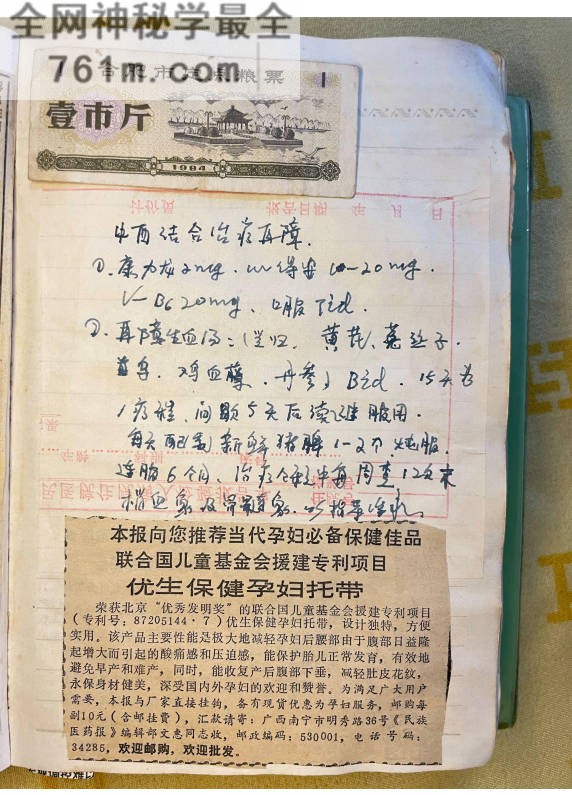 全网神秘学最全
761m.com
合肥市定额粮票
壹市斤
1
1984
计价员 报告日期 年 月 日
中西结合治疗再障.
①. 康力龙2mg.
V-B6 20mg. 口服 Tid.
②. 再障生血汤: 当归. 黄芪. 菟丝子.
首乌. 鸡血藤. 丹参 Bid. 15天为
1疗程, 间歇5天后续进服用.
每天配制新鲜猪脾1-2个 炖服.
连服6个月. 治疗 每周查1次末
梢血象及骨髓象.
本报向您推荐当代孕妇必备保健佳品
联合国儿童基金会援建专利项目
优生保健孕妇托带
荣获北京“优秀发明奖”的联合国儿童基金会援建专利项目
(专利号:87205144·7)优生保健孕妇托带,设计独特,方便
实用。该产品主要性能是极大地减轻孕妇后腰部由于腹部日益隆
起增大而引起的酸痛感和压迫感,能保护胎儿正常发育,有效地
避免早产和难产,同时,能收复产后腹部下垂,减轻肚皮花纹,
永保身材健美,深受国内外孕妇的欢迎和赞誉。为满足广大用户
需要,本报与厂家直接挂钩,备有现货优惠为孕妇服务,邮购每
副10元(含邮挂费),汇款请寄:广西南宁市明秀路36号《民族
医药报》编辑部文惠同志收,邮政编码:530001,电话号码:
34285,欢迎邮购,欢迎批发。